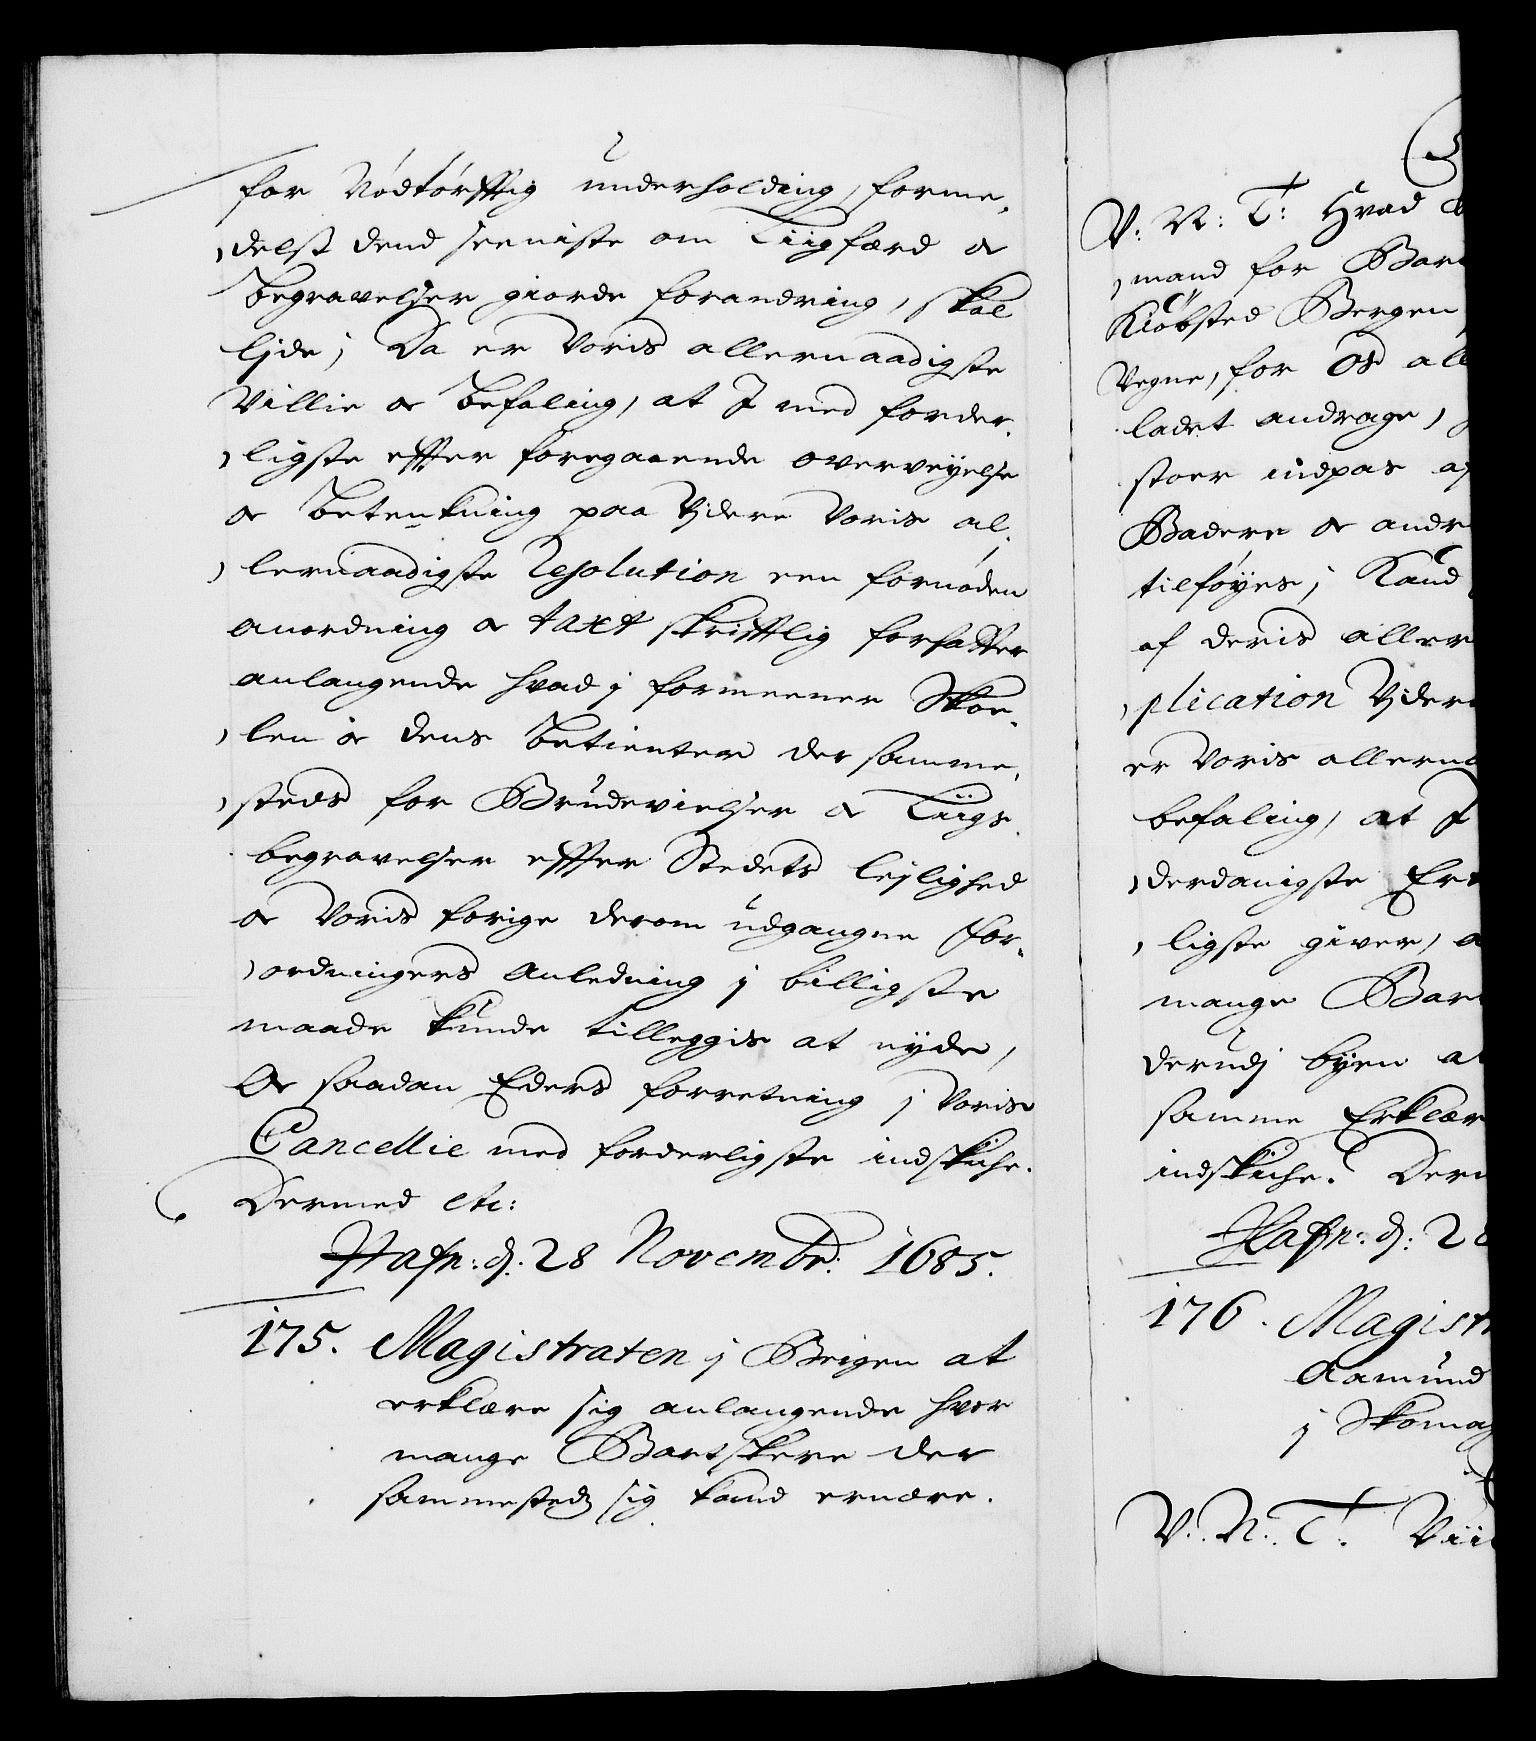 for Nödtörfftig underholding, forme,
,delst dend seeniste om Liigfærd &
Begravelser giorde forandring, skal
lide; Da er Voris allernaadigste
Villie & Befaling, at I med forder,
,ligste efter foregaaende overveyelse
& Betenkning paa Videre Voris al,
,lernaadigste Resolution een fornøden
anordning & taxt skrifftlig forfatter
anlangende hvad j formeener Skoe,
,len & dens Betienter der samme,
,steds for Brudevielser & Liigs
begravelser effter Stedets lejlighed
& Voris forige derom udgangne for,
,ordningers Anledning j billigste
maade kunde tilleggis at nyde,
& saadan Eders forretning j Voris
Cancellie med forderligste indskiche.
Dermed etc:
Hafn: d. 28 Novembr: 1685.
175. Magistraten j Bergen at
erklære sig anlangende hvor
mange Bartskere der
sammesteds sig kand ernære.
V: N: T: Hvad
,mand for Bar
Kiöbsted Bergen,
Vegne, for Os all
ladet andrage,
stoer indpas af
Badere & andr
tilföyes; Kand
af deris aller
,plication Videre
er Voris allerna
befaling, at I
,derdanigste Er
,ligste giver,
mange Bar
derudj byen a
samme Erklær
indskiche. Derm
Hafn: d: 28
176. Magistr
Aamund
j Skomag
V. N. T. Vii